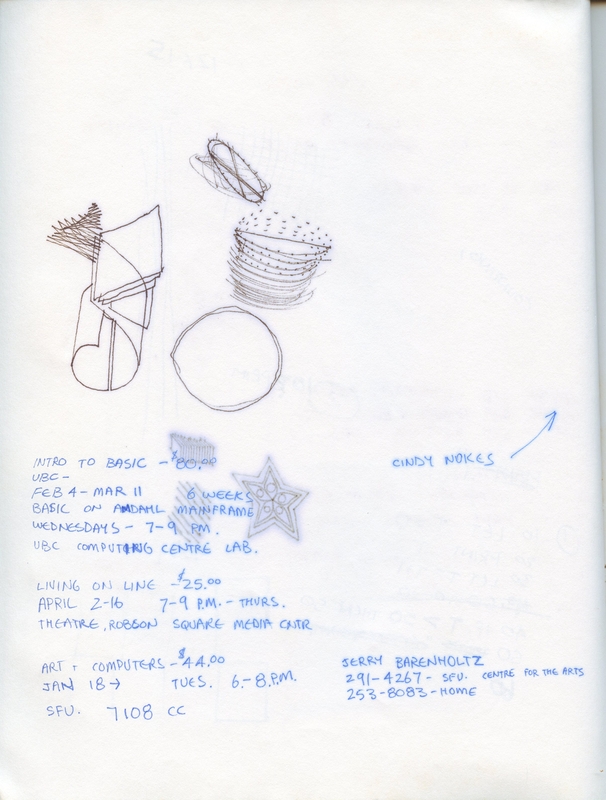 INTRO TO BASIC - $80.00
UBC -
FEB 4 - MAR 11 6 WEEKS
BASIC ON AMDAHL MAINFRAME
WEDNESDAYS - 7-9 P.M.
UBC COMPUTING CENTRE LAB.
CINDY NOKES
LIVING ON LINE - $25.00
APRIL 2-16 7-9 P.M. - THURS.
THEATRE, ROBSON SQUARE MEDIA CNTR
ART + COMPUTERS - $44.00
JAN 18 → TUES. 6-8 P.M.
SFU. 7108 CC
JERRY BARENHOLTZ
291-4267 - SFU. CENTRE FOR THE ARTS
253-8083 - HOME